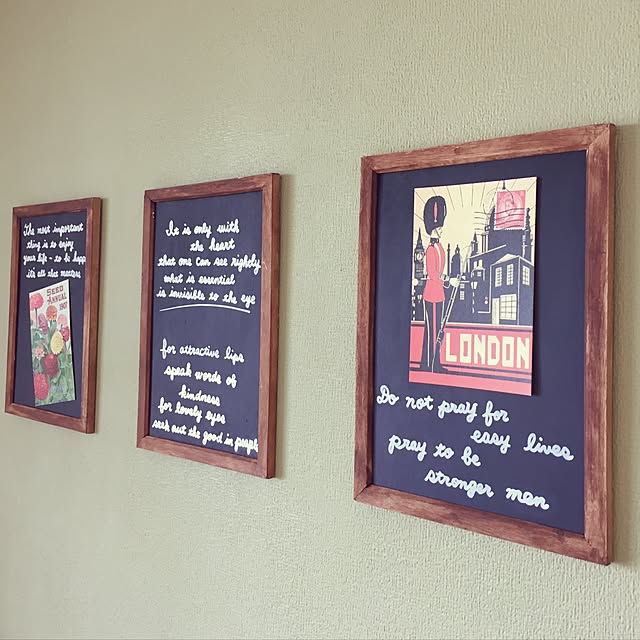 The most important
thing is to enjoy
your life - to be happ
it's all that matters
SEED
ANNUAL
1907
It is only with
the heart
that one Can see rightly
what is essential
is invisible to the eye
for attractive lips
speak words of
kindness
for lovely eyes
seek out the good in people
LONDON
Do not pray for
easy lives
pray to be
stronger men